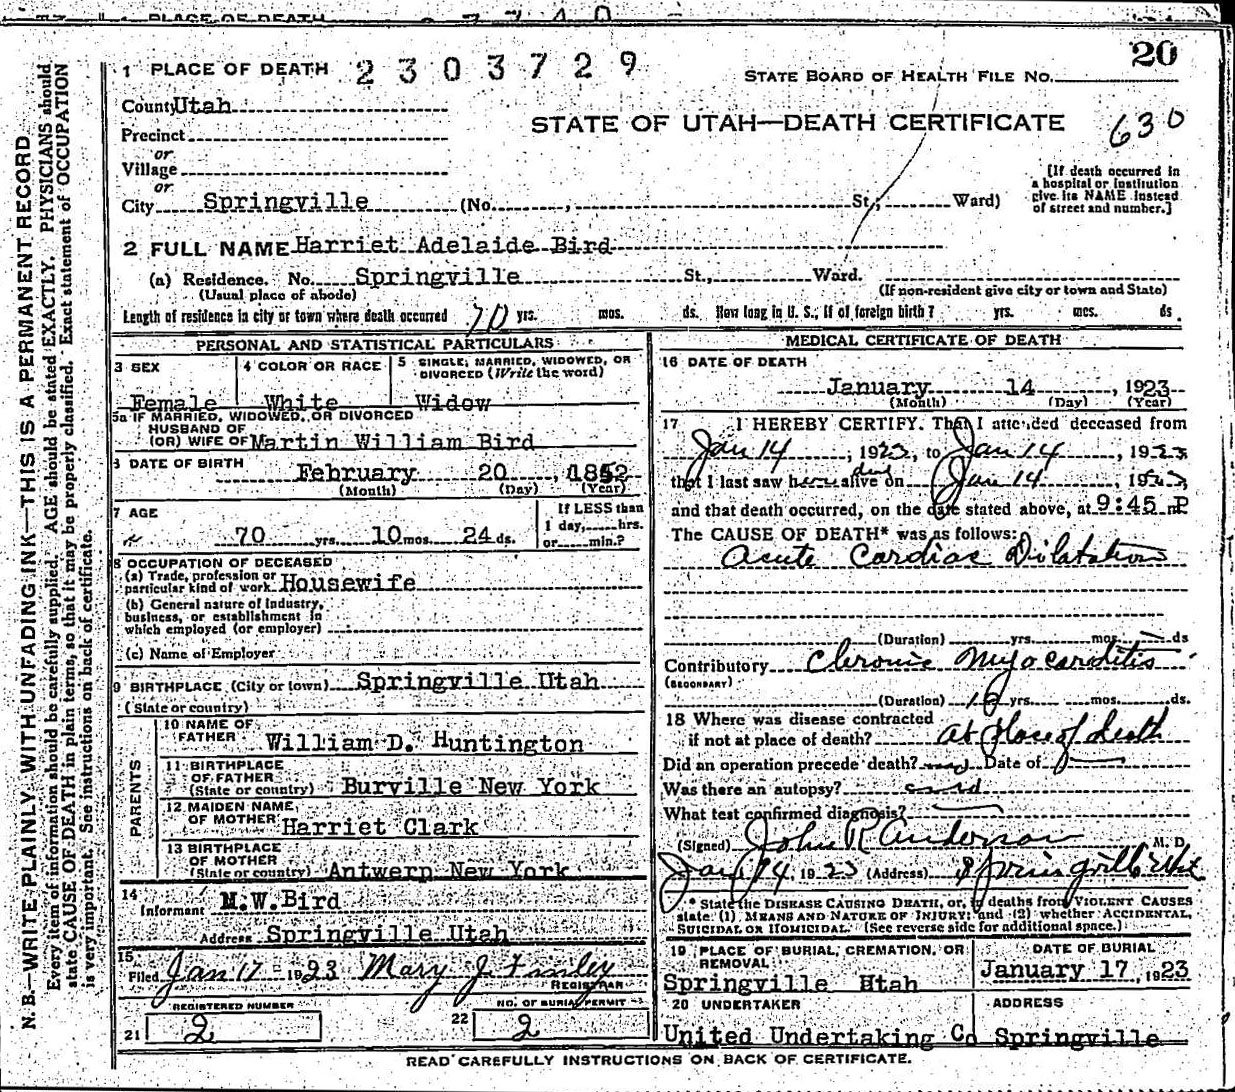 20
1 PLACE OF DEATH 2303729
STATE BOARD OF HEALTH FILE No.
County Utah
STATE OF UTAH—DEATH CERTIFICATE 630
Precinct
or
Village
or
City Springville (No. , St.; Ward)
[If death occurred in
a hospital or institution
give its NAME instead
of street and number.]
2 FULL NAME Harriet Adelaide Bird
(a) Residence. No. Springville St., Ward.
(Usual place of abode)
(If non-resident give city or town and State)
Length of residence in city or town where death occurred 70 yrs. mos. ds. How long in U. S., if of foreign birth? yrs. mos. ds.
PERSONAL AND STATISTICAL PARTICULARS
3 SEX
Female
4 COLOR OR RACE
White
5 SINGLE, MARRIED, WIDOWED, OR
DIVORCED (Write the word)
Widow
5a IF MARRIED, WIDOWED, OR DIVORCED
HUSBAND OF
(OR) WIFE OF Martin William Bird
6 DATE OF BIRTH
February 20, 1852
(Month) (Day) (Year)
7 AGE
70 yrs. 10 mos. 24 ds.
If LESS than
1 day, hrs.
or min.?
8 OCCUPATION OF DECEASED
(a) Trade, profession or
particular kind of work Housewife
(b) General nature of industry,
business, or establishment in
which employed (or employer)
(c) Name of Employer
9 BIRTHPLACE (City or town) Springville Utah
(State or country)
PARENTS
10 NAME OF
FATHER William D. Huntington
11 BIRTHPLACE
OF FATHER
(State or country) Burville New York
12 MAIDEN NAME
OF MOTHER Harriet Clark
13 BIRTHPLACE
OF MOTHER
(State or country) Antwerp New York
14
Informant M.W.Bird
Address Springville Utah
15
Filed Jan 17 1923 Mary J Finley
REGISTRAR
REGISTERED NUMBER
21 2
NO. OF BURIAL PERMIT
22 2
MEDICAL CERTIFICATE OF DEATH
16 DATE OF DEATH
January 14, 1923
(Month) (Day) (Year)
17 I HEREBY CERTIFY. That I attended deceased from
Jan 14, 1923, to Jan 14, 1923
that I last saw her alive on Jan 14, 1923,
and that death occurred, on the date stated above, at 9:45 P m
The CAUSE OF DEATH* was as follows:
Acute Cardiac Dilatation
(Duration) yrs. mos. ds
Contributory Chronic Myocarditis
(SECONDARY)
(Duration) yrs. mos. ds.
18 Where was disease contracted
if not at place of death? at place of death
Did an operation precede death? Date of
Was there an autopsy?
What test confirmed diagnosis?
(Signed) John R Anderson M. D.
Jan 14, 1923 (Address) Springville Utah
* State the DISEASE CAUSING DEATH, or, in deaths from VIOLENT CAUSES
state (1) MEANS AND NATURE OF INJURY; and (2) whether ACCIDENTAL,
SUICIDAL OR HOMICIDAL. (See reverse side for additional space.)
19 PLACE OF BURIAL, CREMATION, OR
REMOVAL
Springville Utah
DATE OF BURIAL
January 17, 1923
20 UNDERTAKER
United Undertaking Co
ADDRESS
Springville
READ CAREFULLY INSTRUCTIONS ON BACK OF CERTIFICATE.
N. B.—WRITE PLAINLY WITH UNFADING INK—THIS IS A PERMANENT RECORD
Every item of information should be carefully supplied. AGE should be stated EXACTLY. PHYSICIANS should
state CAUSE OF DEATH in plain terms, so that it may be properly classified. Exact statement of OCCUPATION
is very important. See instructions on back of certificate.